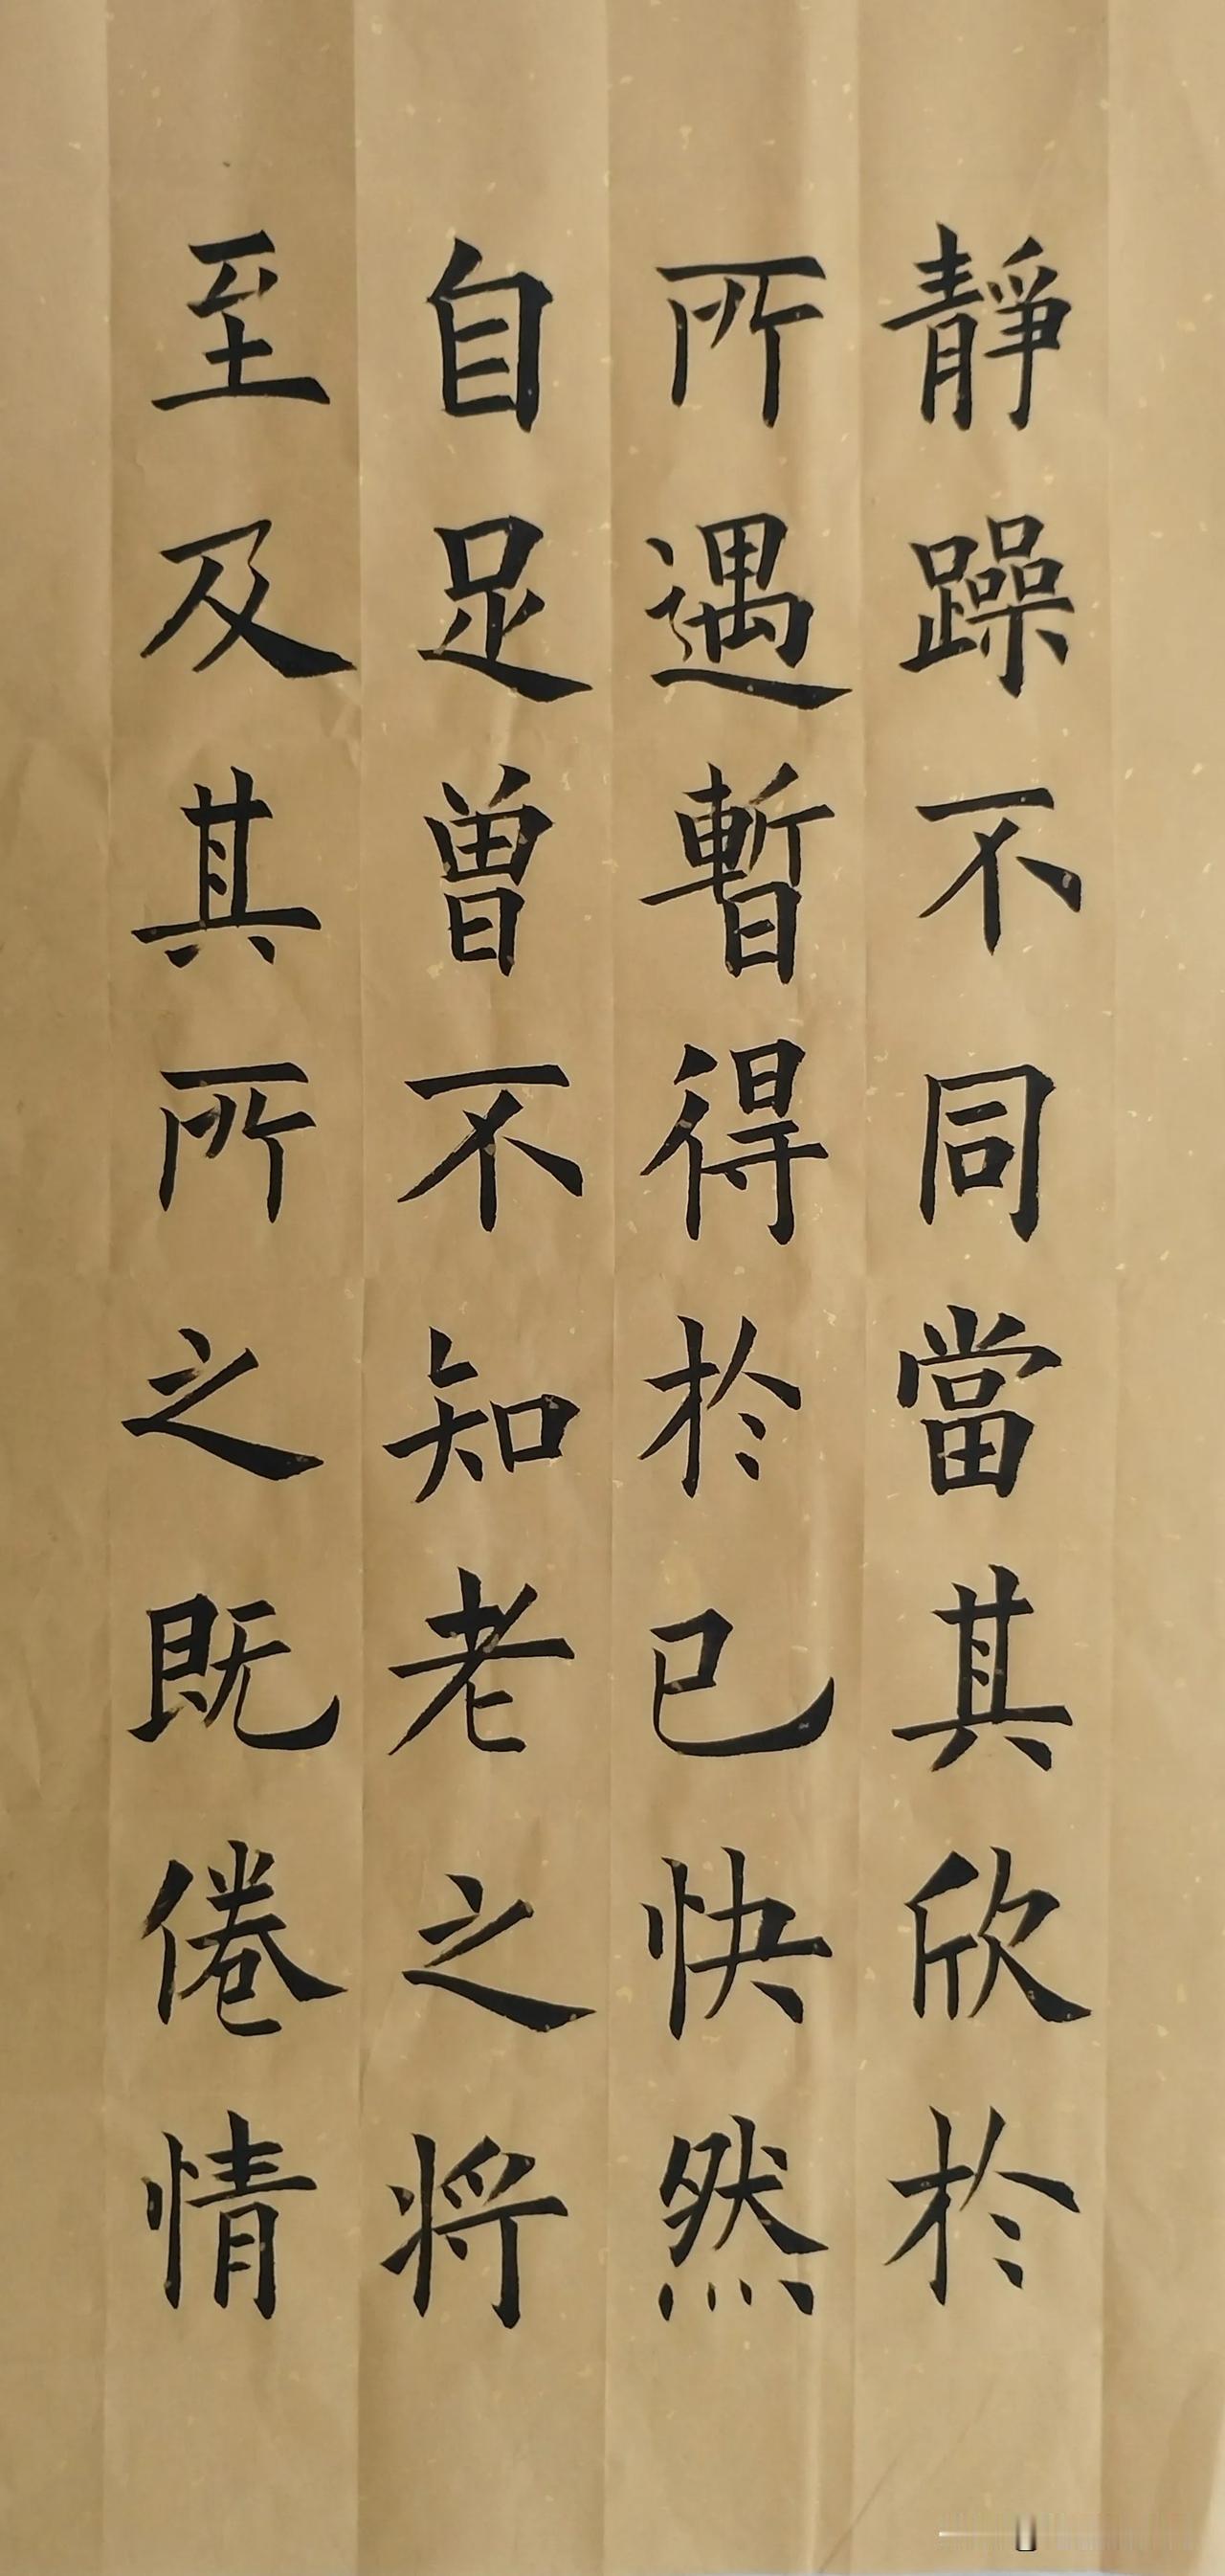 靜躁不同當其欣於
所遇暫得於己快然
自足曽不知老之将
至及其所之既倦情